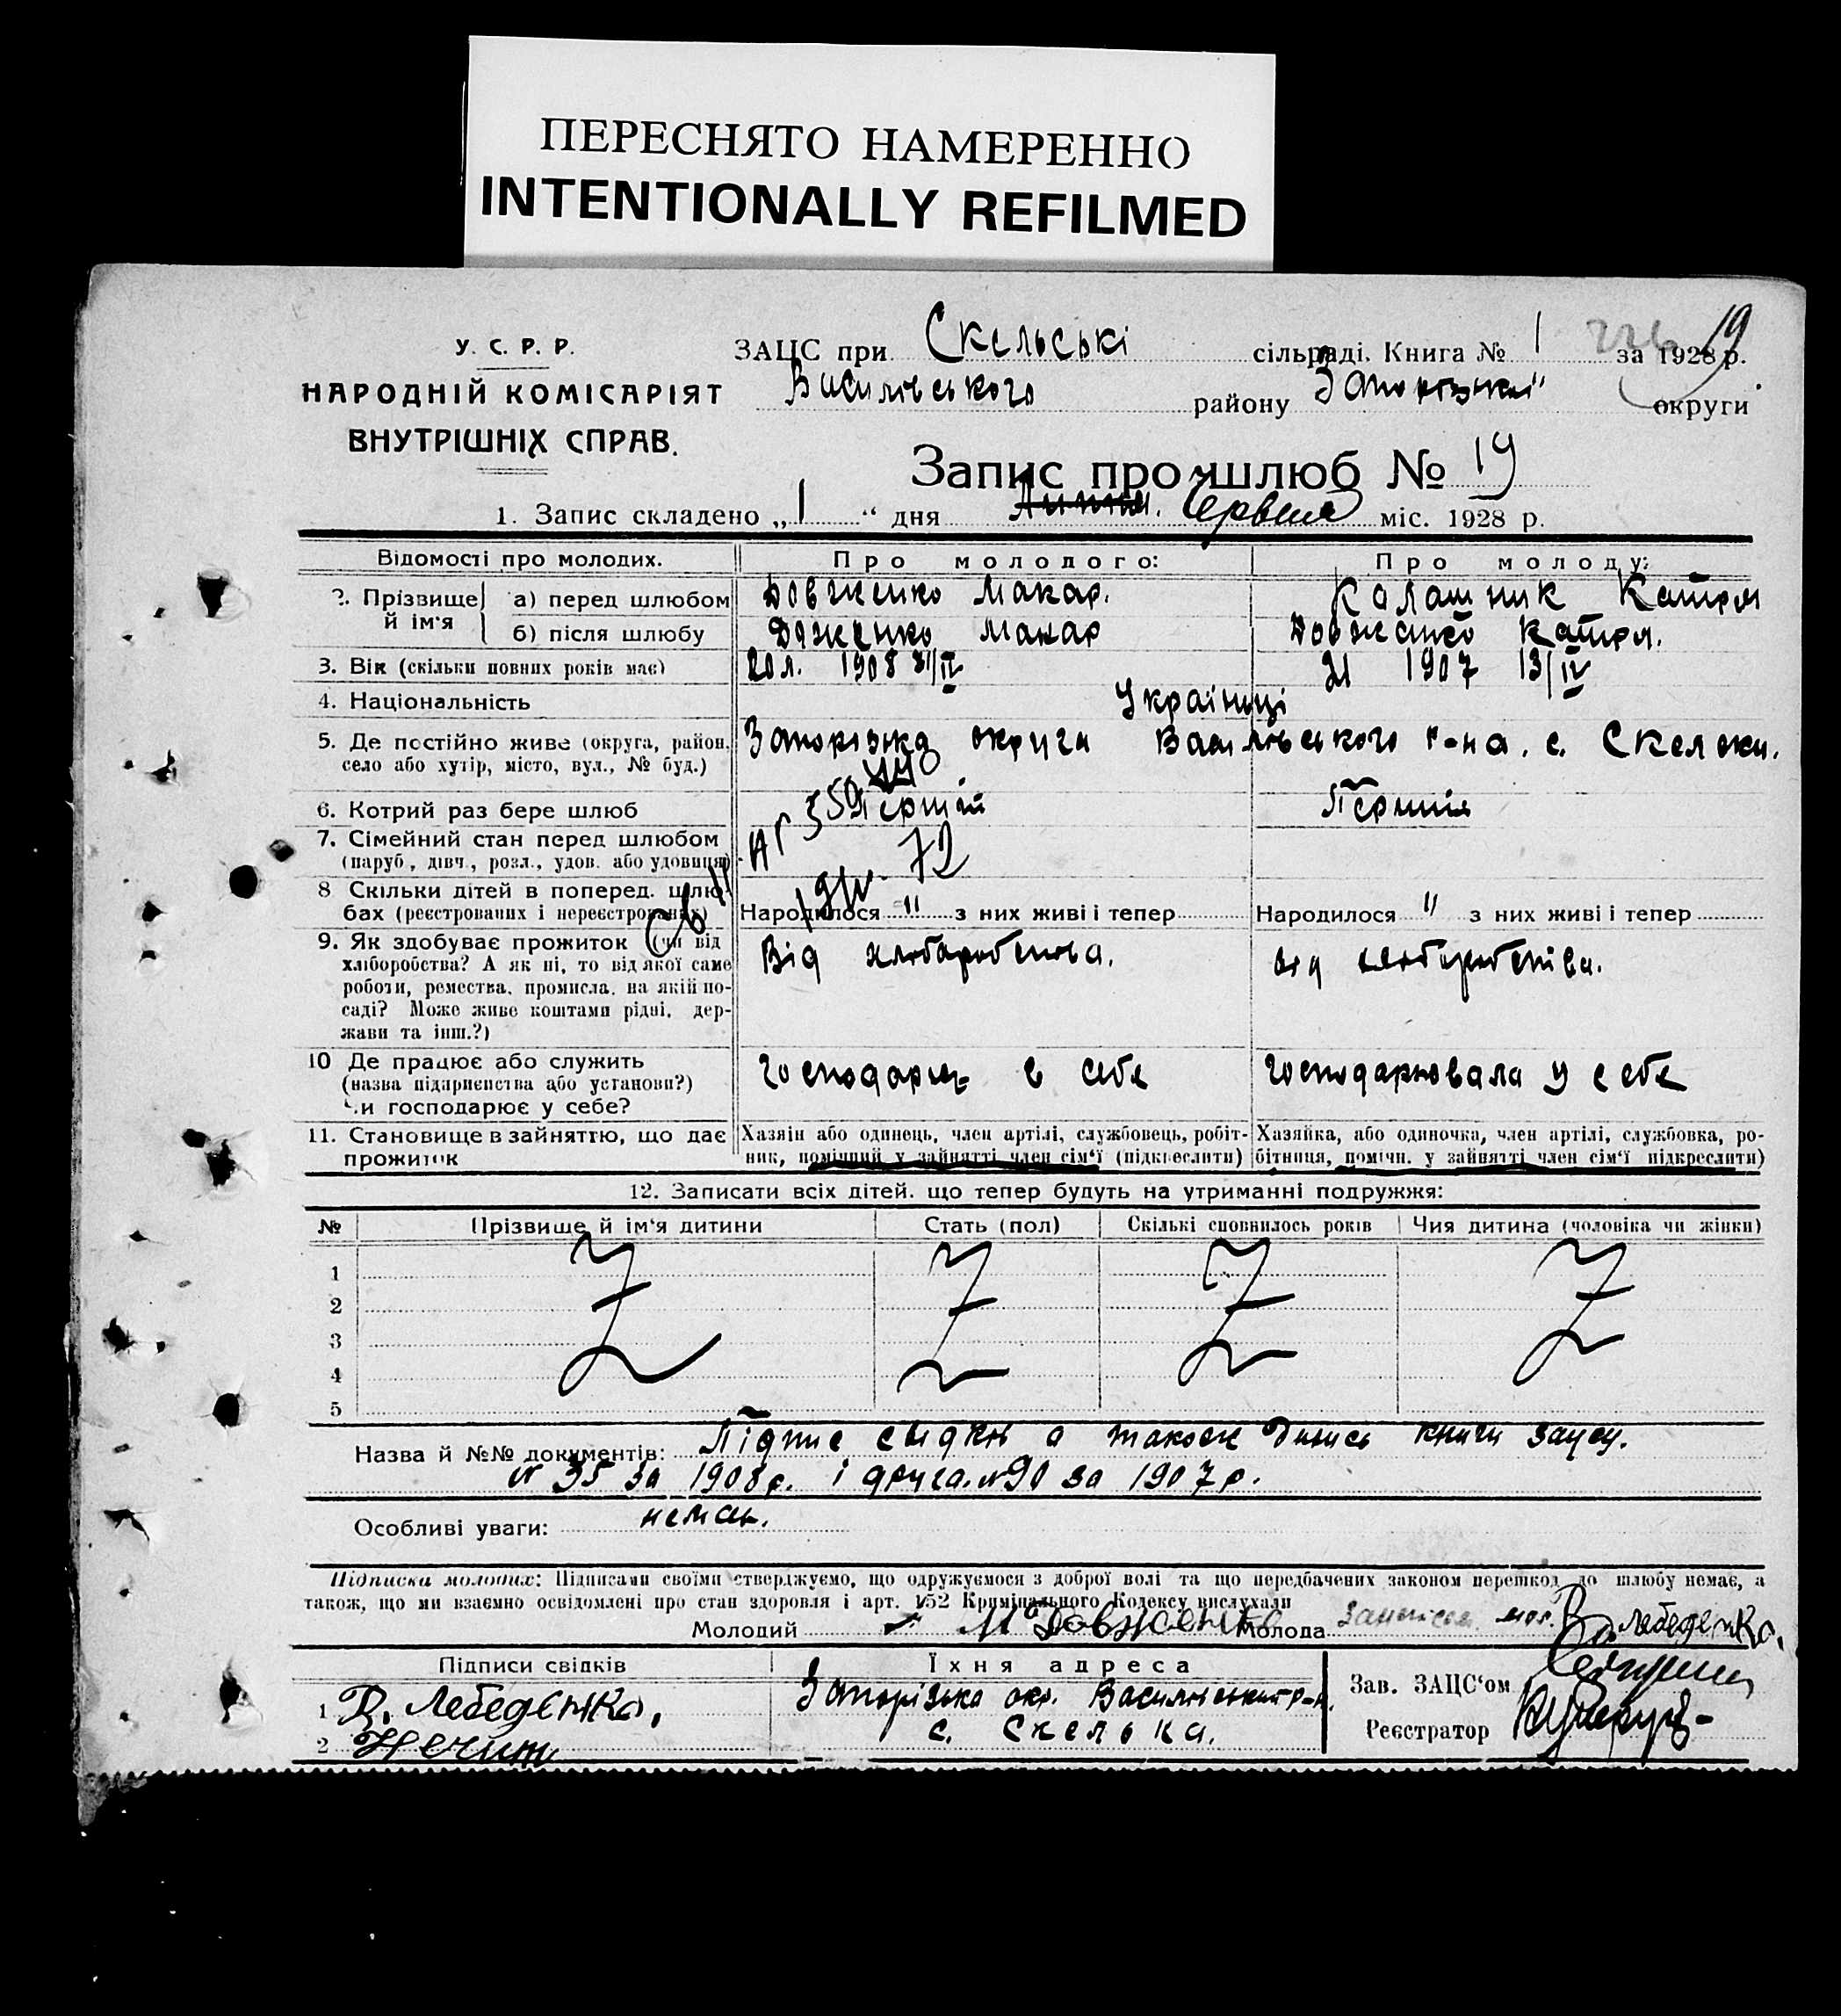 ПЕРЕСНЯТО НАМЕРЕННО
INTENTIONALLY REFILMED
У. С. Р. Р.
НАРОДНІЙ КОМІСАРІЯТ
ВНУТРІШНІХ СПРАВ.
ЗАЦС при Скельські сільраді. Книга № 1 за 1928 р. 19
Василівського району округи
Запис про шлюб № 19
1. Запис складено „1“ дня Червня міс. 1928 р.
Відомості про молодих. Про молодого: Про молоду:
2. Прізвище й ім'я а) перед шлюбом Довженко Макар. Калашник Катря
б) після шлюбу Дженко Макар Довженко Катря.
3. Вік (скільки повних років має) 20 л. 1908 21 1907 13/IV
4. Національність Українці
5. Де постійно живе (округа, район, село або хутір, місто, вул., № буд.) Запорізька округи Василівського р-на. с. Скельки.
6. Котрий раз бере шлюб Перший Перший
7. Сімейний стан перед шлюбом (паруб., дівч., розл., удов. або удовиця)
8 Скільки дітей в поперед. шлюбах (реєстрованих і нереєстрованих) Народилося " з них живі і тепер Народилося " з них живі і тепер
9. Як здобуває прожиток (чи від хліборобства? А як ні, то від якої саме роботи, ремества, промисла, на якій посаді? Може живе коштами рідні, держави та інш.?) Від хлібаробства. від хліборобства.
10 Де працює або служить (назва підприємства або установи?) Чи господарює у себе? господарює в себе господарювала у себе
11. Становище в зайняттю, що дає прожиток Хазяїн або одинець, член артілі, службовець, робітник, помічний у зайнятті член сім'ї (підкреслити) Хазяйка, або одиночка, член артілі, службовка, робітниця, помічн. у зайнятті член сім'ї підкреслити)
12. Записати всіх дітей, що тепер будуть на утриманні подружжя:
№ Прізвище й ім'я дитини Стать (пол) Скількі сповнилось років Чия дитина (чоловіка чи жінки)
1
2
3
4
5
Назва й №№ документів: Підпис свідків а також книги зацсу.
№ 35 за 1908 р. і друга. №90 за 1907 р.
Особливі уваги: немає.
Підписка молодих: Підписами своїми стверджуємо, що одружуємося з доброї волі та що передбачених законом перешкод до шлюбу немає, а
також, що ми взаємно освідомлені про стан здоровля і арт. 152 Кримінального Кодексу вислухали
Молодий М Довженко Молода Лебеденко.
Підписи свідків Їхня адреса Зав. ЗАЦС'ом
1 В. Лебеденко, Запорізька окр. Василівський р-н.
2 с. Скелька. Реєстратор